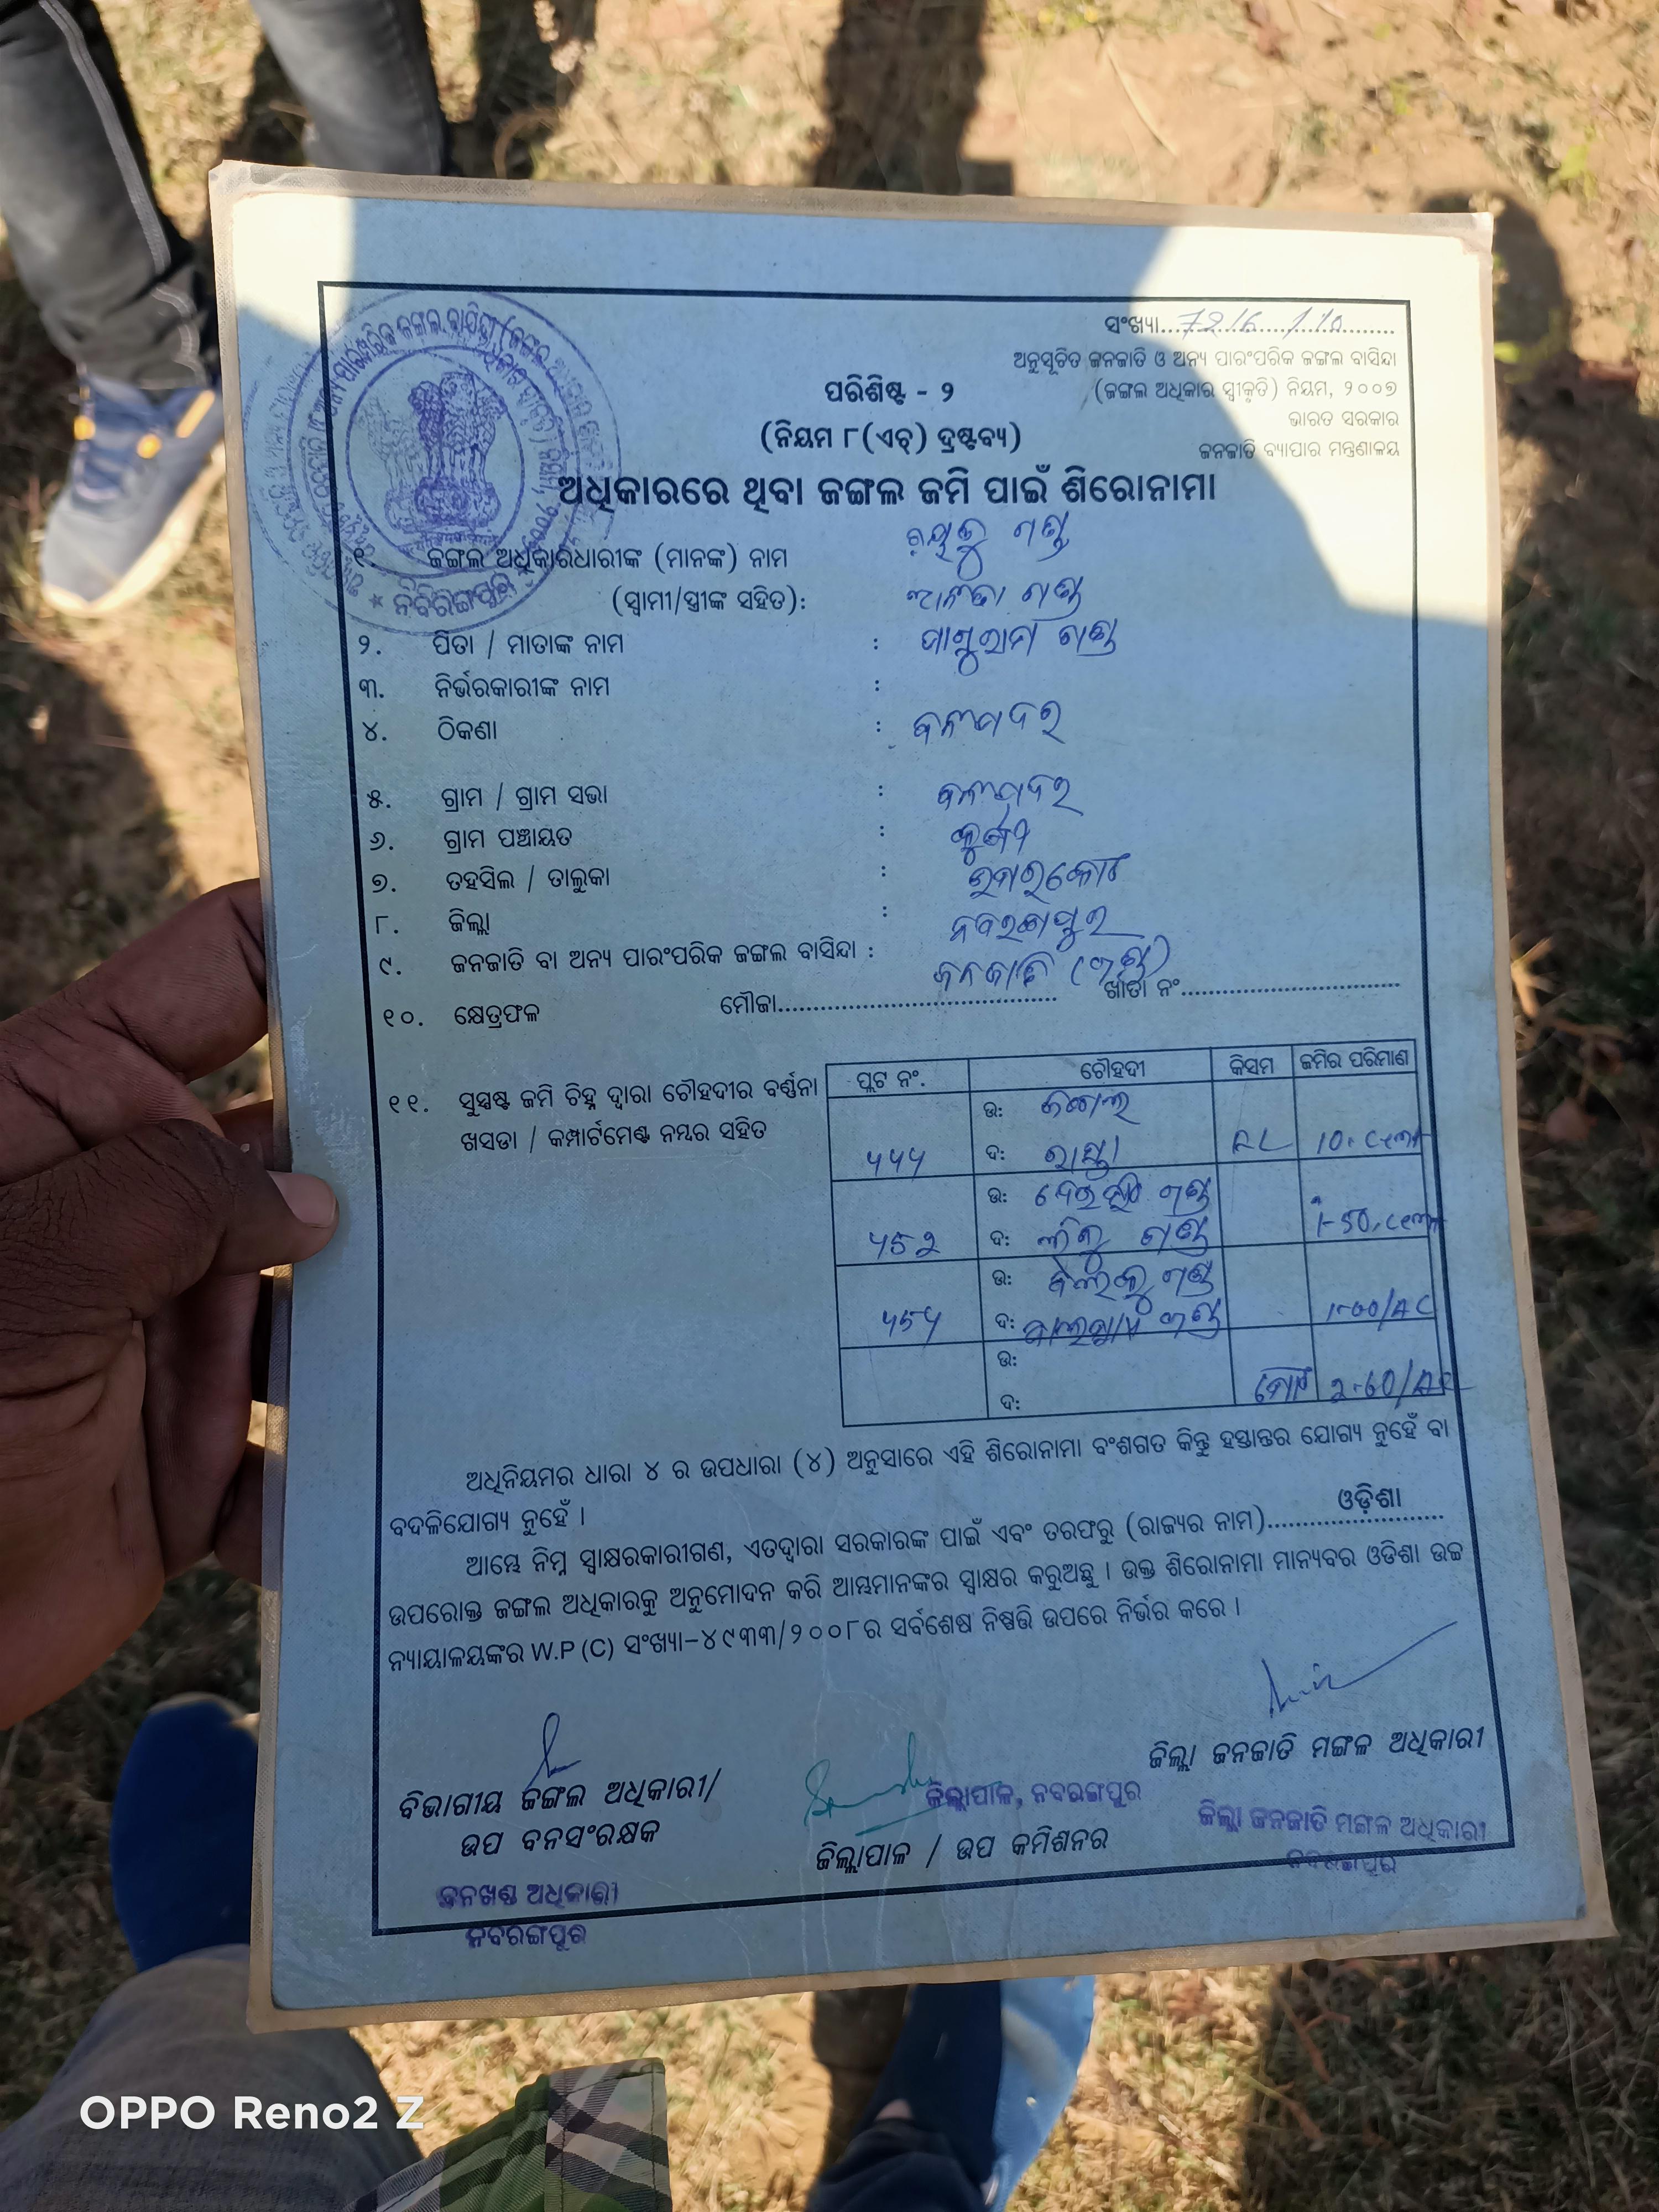 ସଂଖ୍ୟା
ଅନୁସୂଚିତ ଜନଜାତି ଓ ଅନ୍ୟ ପାରଂପରିକ ଜଙ୍ଗଲ ବାସିନ୍ଦା
(ଜଙ୍ଗଲ ଅଧିକାର ସ୍ୱୀକୃତି) ନିୟମ, ୨୦୦୭
ଭାରତ ସରକାର
ଜନଜାତି ବ୍ୟାପାର ମନ୍ତ୍ରଣାଳୟ
ପରିଶିଷ୍ଟ - ୨
(ନିୟମ ୮(ଏଚ୍) ଦ୍ରଷ୍ଟବ୍ୟ)
ଅଧିକାରରେ ଥିବା ଜଙ୍ଗଲ ଜମି ପାଇଁ ଶିରୋନାମା
୧. ଜଙ୍ଗଲ ଅଧିକାରଧାରୀଙ୍କ (ମାନଙ୍କ) ନାମ ଗଣ୍ଡ
(ସ୍ୱାମୀ/ସ୍ତ୍ରୀଙ୍କ ସହିତ): ଗଣ୍ଡ
୨. ପିତା / ମାତାଙ୍କ ନାମ : ଗଣ୍ଡ
୩. ନିର୍ଭରକାରୀଙ୍କ ନାମ :
୪. ଠିକଣା :
୫. ଗ୍ରାମ / ଗ୍ରାମ ସଭା :
୬. ଗ୍ରାମ ପଞ୍ଚାୟତ :
୭. ତହସିଲ / ତାଲୁକା : ଉମରକୋଟ
୮. ଜିଲ୍ଲା : ନବରଙ୍ଗପୁର
୯. ଜନଜାତି ବା ଅନ୍ୟ ପାରଂପରିକ ଜଙ୍ଗଲ ବାସିନ୍ଦା : ଜନଜାତି (ଗଣ୍ଡ)
୧୦. କ୍ଷେତ୍ରଫଳ ମୌଜା ଖାତା ନଂ
୧୧. ସୁସ୍ପଷ୍ଟ ଜମି ଚିହ୍ନ ଦ୍ୱାରା ଚୌହଦୀର ବର୍ଣ୍ଣନା
ଖସଡା / କମ୍ପାର୍ଟମେଣ୍ଟ ନମ୍ବର ସହିତ
ପ୍ଲଟ ନଂ. ଚୌହଦୀ କିସମ ଜମିର ପରିମାଣ
ଉ: ଜଙ୍ଗଲ
ଦ: ରାସ୍ତା
ଉ: ଗଣ୍ଡ
ଦ: ଗଣ୍ଡ
ଉ: ଗଣ୍ଡ
ଦ: ଗଣ୍ଡ 1-00/AC
ଉ:
ଦ: ମୋଟ 2-60/AC
ଅଧିନିୟମର ଧାରା ୪ ର ଉପଧାରା (୪) ଅନୁସାରେ ଏହି ଶିରୋନାମା ବଂଶଗତ କିନ୍ତୁ ହସ୍ତାନ୍ତର ଯୋଗ୍ୟ ନୁହେଁ ବା
ବଦଳିଯୋଗ୍ୟ ନୁହେଁ ।
ଆମ୍ଭେ ନିମ୍ନ ସ୍ୱାକ୍ଷରକାରୀଗଣ, ଏତଦ୍ୱାରା ସରକାରଙ୍କ ପାଇଁ ଏବଂ ତରଫରୁ (ରାଜ୍ୟର ନାମ) ଓଡ଼ିଶା
ଉପରୋକ୍ତ ଜଙ୍ଗଲ ଅଧିକାରକୁ ଅନୁମୋଦନ କରି ଆମ୍ଭମାନଙ୍କର ସ୍ୱାକ୍ଷର କରୁଅଛୁ । ଉକ୍ତ ଶିରୋନାମା ମାନ୍ୟବର ଓଡିଶା ଉଚ୍ଚ
ନ୍ୟାୟାଳୟଙ୍କର W.P (C) ସଂଖ୍ୟା-୪୯୩୩/୨୦୦୮ର ସର୍ବଶେଷ ନିଷ୍ପତ୍ତି ଉପରେ ନିର୍ଭର କରେ ।
ବିଭାଗୀୟ ଜଙ୍ଗଲ ଅଧିକାରୀ/
ଉପ ବନସଂରକ୍ଷକ
ବନଖଣ୍ଡ ଅଧିକାରୀ
ନବରଙ୍ଗପୁର
ଜିଲ୍ଲାପାଳ, ନବରଙ୍ଗପୁର
ଜିଲ୍ଲାପାଳ / ଉପ କମିଶନର
ଜିଲ୍ଲା ଜନଜାତି ମଙ୍ଗଳ ଅଧିକାରୀ
ଜିଲ୍ଲା ଜନଜାତି ମଙ୍ଗଳ ଅଧିକାରୀ
ନବରଙ୍ଗପୁର
OPPO Reno2 Z